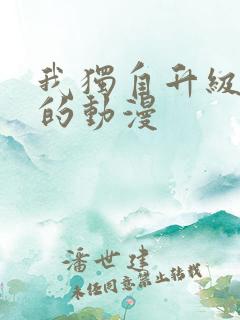 我獨自升級
的動漫
潘世建
未經同意禁止轉載